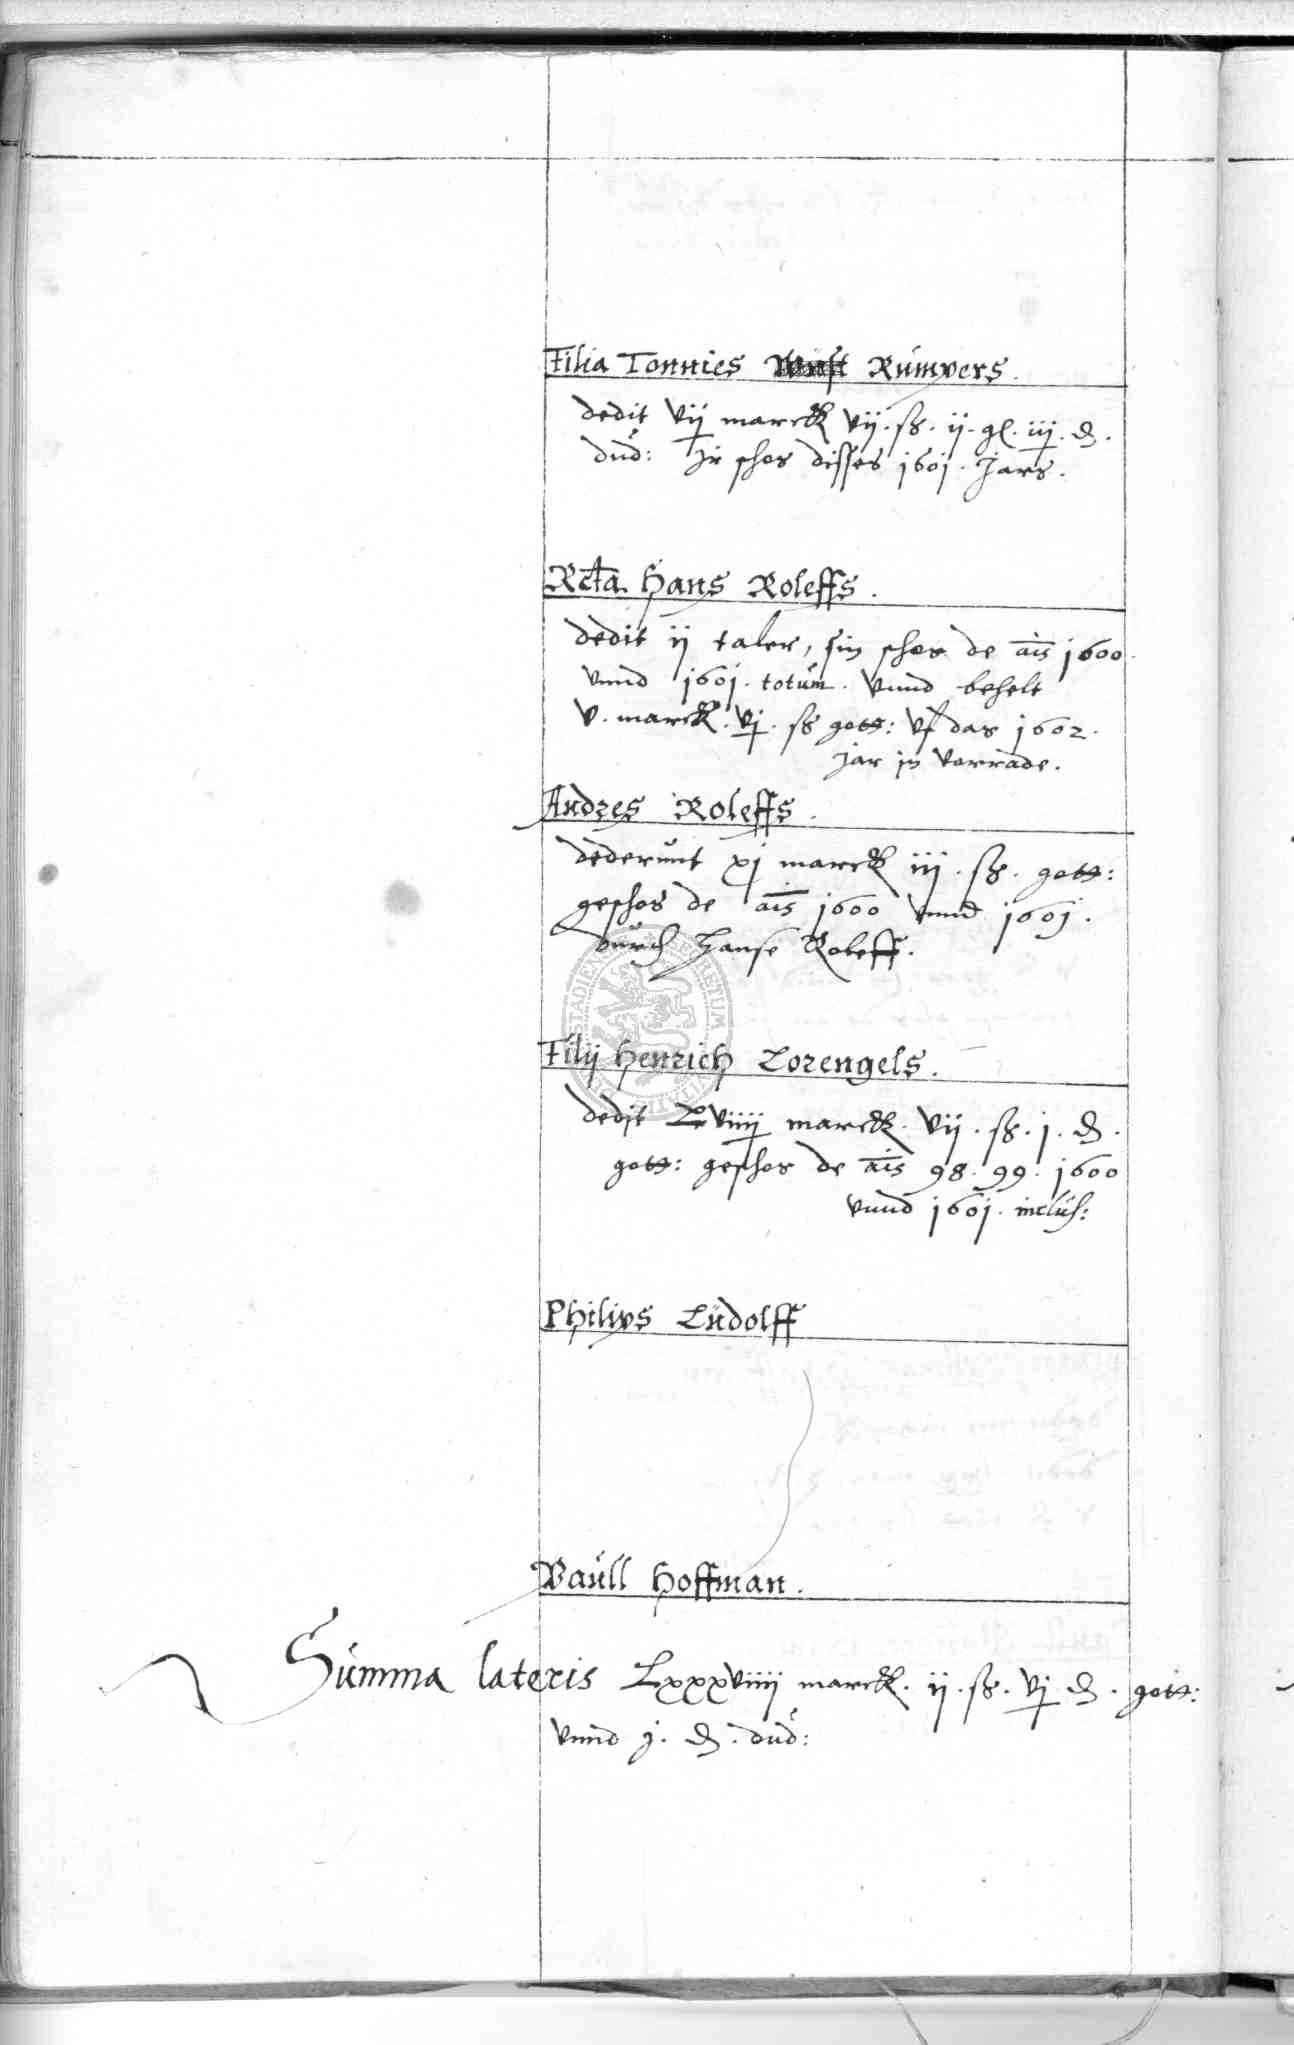 Filia Tonnies Rümpers.
dedit vij marck vij. ß. ij. gl. iij. d.
dud: Jr schos disses 1601. Jars.
Rcta Hans Roleffs.
dedit ij taler, sin schos de ais 1600
vnnd 1601. totum. vnnd behelt
v. marck. vj. ß gott: vf das 1602.
jar in vorrade.
Andres Roleffs.
dederunt xj marck iij. ß. gott:
geschos de ais 1600 vnnd 1601.
durch Hanse Roleff.
Filij Henrich Lorengels.
dedit Lviiij marck. vij. ß. j. d.
gott: geschos de ais 98. 99. 1600
vnnd 1601. inclus:
Philips Ludolff
Paull Hoffman.
Summa lateris Lxxxviiij marck. ij. ß. vj d. gott:
vnnd j. d. dud: